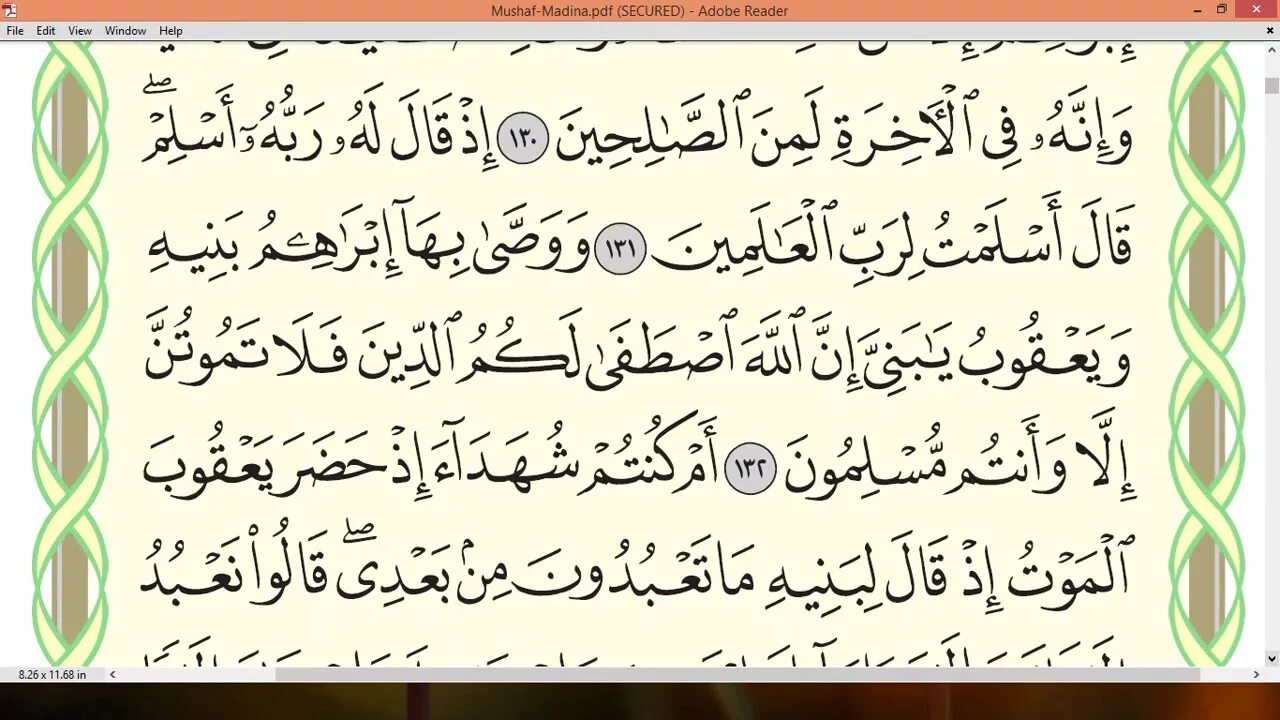 Mushaf-Madina.pdf (SECURED) - Adobe Reader
File Edit View Window Help
وَإِنَّهُۥ فِى ٱلْأَخِرَةِ لَمِنَ ٱلصَّـٰلِحِينَ ١٣٠ إِذْ قَالَ لَهُۥ رَبُّهُۥٓ أَسْلِمْ ۖ
قَالَ أَسْلَمْتُ لِرَبِّ ٱلْعَـٰلَمِينَ ١٣١ وَوَصَّىٰ بِهَآ إِبْرَٰهِـۧمُ بَنِيهِ
وَيَعْقُوبُ يَـٰبَنِىَّ إِنَّ ٱللَّهَ ٱصْطَفَىٰ لَكُمُ ٱلدِّينَ فَلَا تَمُوتُنَّ
إِلَّا وَأَنتُم مُّسْلِمُونَ ١٣٢ أَمْ كُنتُمْ شُهَدَآءَ إِذْ حَضَرَ يَعْقُوبَ
ٱلْمَوْتُ إِذْ قَالَ لِبَنِيهِ مَا تَعْبُدُونَ مِنۢ بَعْدِى ۖ قَالُوا۟ نَعْبُدُ
8.26 x 11.68 in